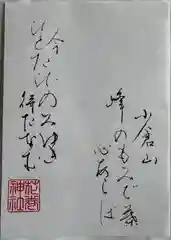 小倉山
峰のもみぢ葉
心あらば
今
ひとたびの
みゆき
待たなむ
神社